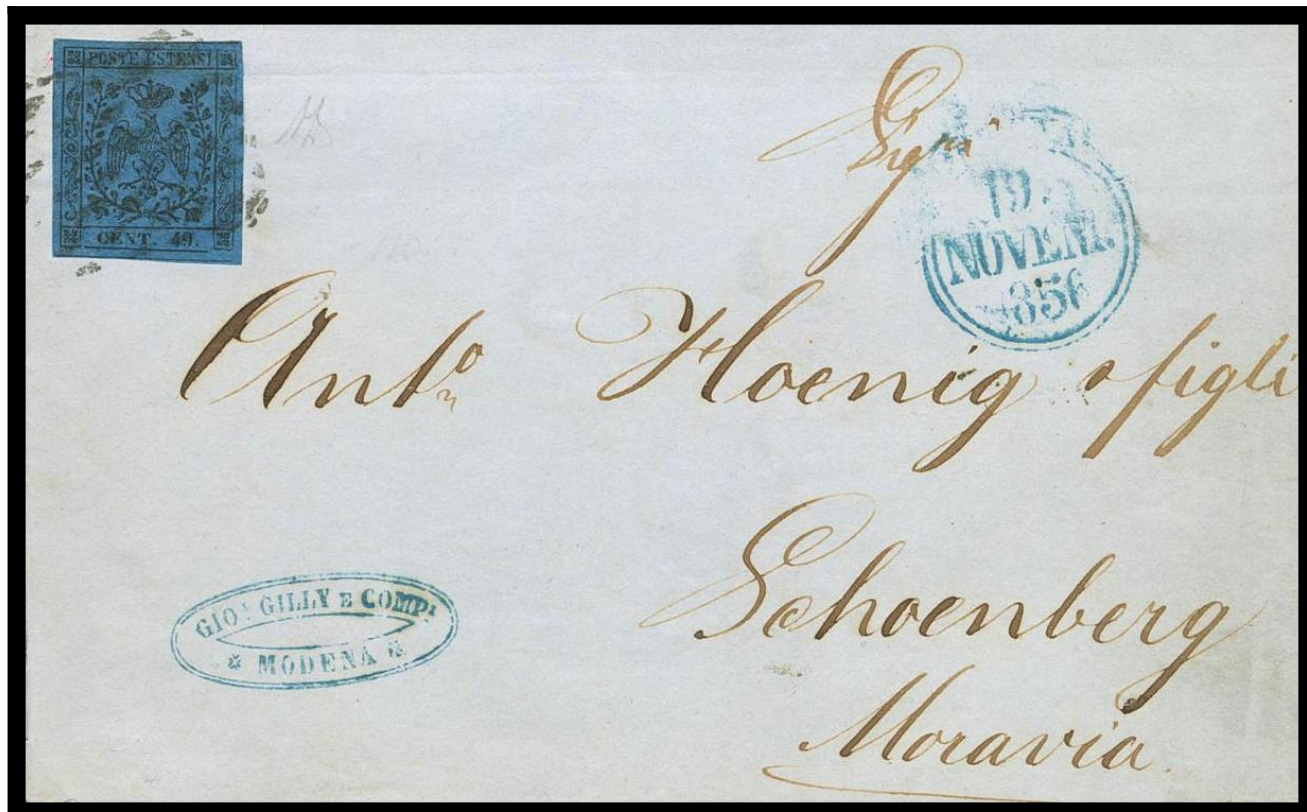 POSTE ESTENSI
CENT. 49.
Sigri
19
NOVEM.
856
Anto Hoenig e figli
Schoenberg
Moravia.
GIO. GILLY E COMP.
* MODENA *